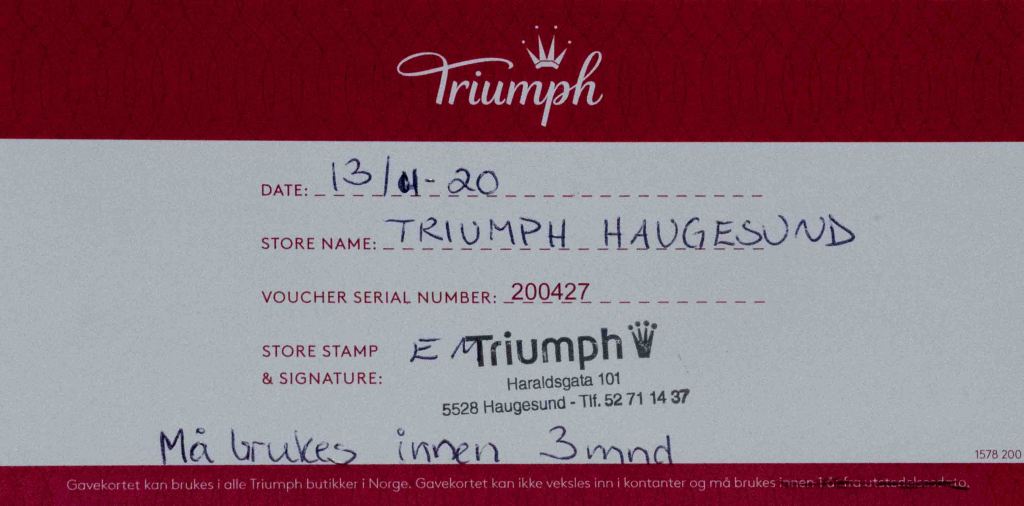 Triumph
DATE: 13/11-20
STORE NAME: TRIUMPH HAUGESUND
VOUCHER SERIAL NUMBER: 200427
STORE STAMP
& SIGNATURE:
EM Triumph
Haraldsgata 101
5528 Haugesund - Tlf. 52 71 14 37
Må brukes innen 3 mnd
1578 200
Gavekortet kan brukes i alle Triumph butikker i Norge. Gavekortet kan ikke veksles inn i kontanter og må brukes innen 1 år fra utstedelsesdato.